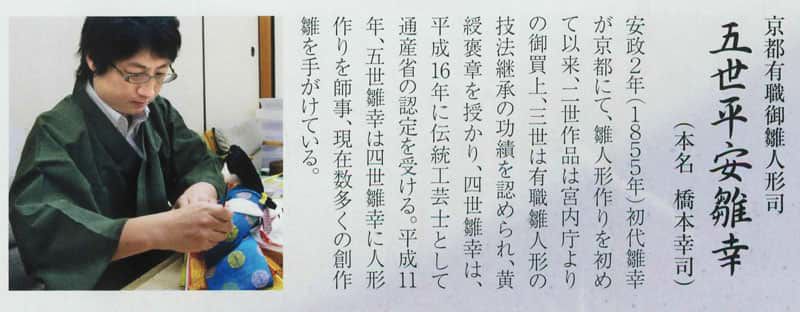 京都有職御雛人形司
五世平安雛幸
（本名　橋本幸司）
安政２年（１８５５年）初代雛幸
が京都にて、雛人形作りを初め
て以来、二世作品は宮内庁より
の御買上、三世は有職雛人形の
技法継承の功績を認められ、黄
綬褒章を授かり、四世雛幸は、
平成16年に伝統工芸士として
通産省の認定を受ける。平成11
年、五世雛幸は四世雛幸に人形
作りを師事、現在数多くの創作
雛を手がけている。